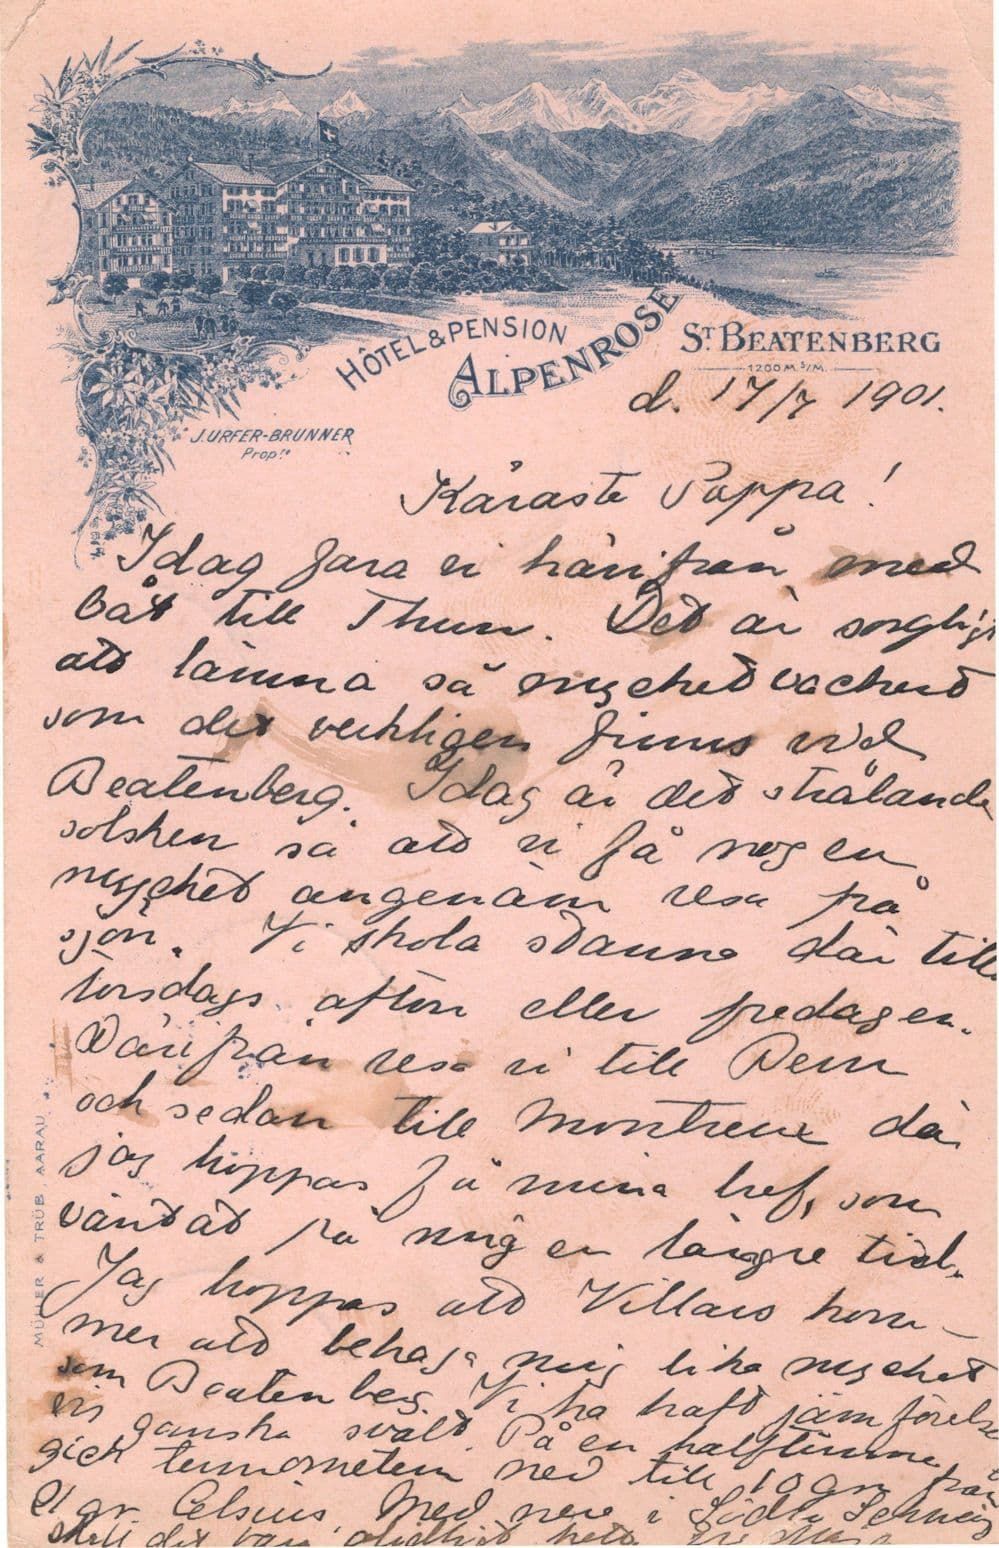 HÔTEL & PENSION
ALPENROSE
ST BEATENBERG
1200 M. S/M.
J. URFER-BRUNNER
Propre
MÜLLER & TRÜB, AARAU
d. 17/7 1901.
Käraste Pappa!
Idag fara vi härifrån med
båt till Thun. Det är sorgligt
att lämna så mycket vackert
som det verkligen finns vid
Beatenberg. Idag är det strålande
solsken så att vi få nog en
mycket angenäm resa på
sjön. Vi skola stanna där till
torsdags afton eller fredagen.
Därifrån resa vi till Bern
och sedan till Montreux där
jag hoppas få mina bref, som
väntat på mig en längre tid.
Jag hoppas att Villars kom-
mer att behaga mig lika mycket
som Beatenberg. Vi ha haft jämförelse
vis ganska svalt. På en halftimme
gick termometern ned till 10 gr. från
21 gr. Celsius. Med nere i Södra
skall det vara